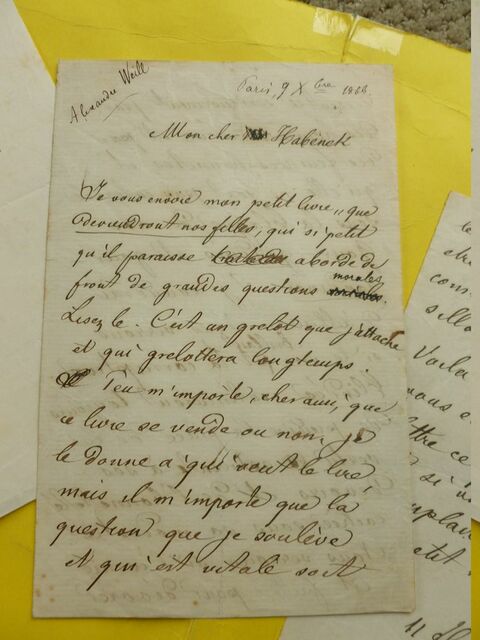 Alexandre Weill
Paris, 9 Xbre 1868.
Mon cher Habeneck
Je vous envoie mon petit livre, „que
deviendront nos filles, qui si petit
qu'il paraisse aborde de
front de grandes questions morales.
Lisez le. C'est un grelot que j'attache
et qui grelottera longtemps.
Peu m'importe, cher ami, que
ce livre se vende ou non, je
le donne à qui veut le lire,
mais il m'importe que la
question que je soulève
et qui est vitale soit
le
etre
com
sillo
Voila
vous e
ttre ce
si
uplai
etit
11